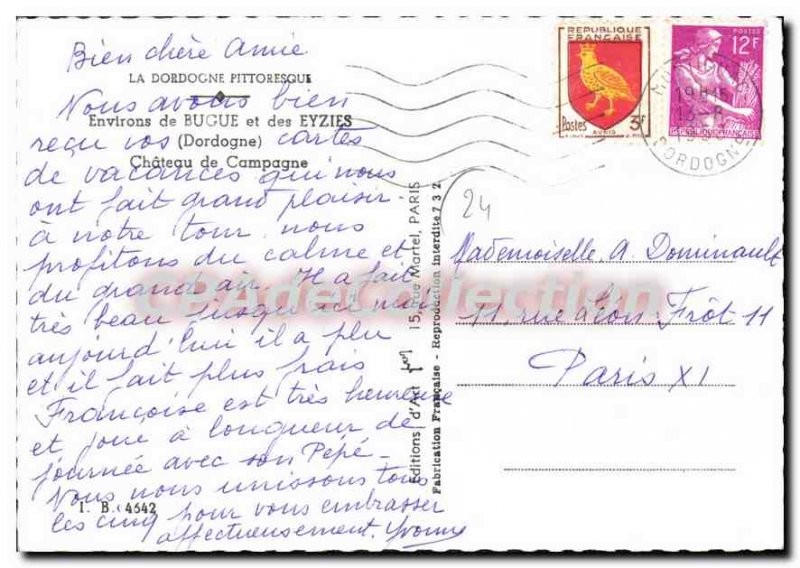 Bien chère Annie
LA DORDOGNE PITTORESQUE
Environs de BUGUE et des EYZIES
(Dordogne)
Château de Campagne
Nous avons bien
reçu vos cartes
de vacances qui nous
ont fait grand plaisir.
à notre tour nous
profitons du calme et
du grand air. Il a fait
très beau jusqu'ici mais
aujourd'hui il a plu
et il fait plus frais
Françoise est très heureuse
et joue à longueur de
journée avec son Pépé.
Nous nous unissons tous
les cinq pour vous embrasser
affectueusement. Yvonne
I. B. 4642
Editions d'Art 15, rue Martel, PARIS
Fabrication Française - Reproduction interdite 732
REPUBLIQUE
FRANÇAISE
Postes 3F
AUNIS
POSTES
12F
REPUBLIQUE FRANÇAISE
19H15
DORDOGNE
24
Mademoiselle A. Dominault
11, rue Léon Frôt 11
Paris XI
CPAdeCollection